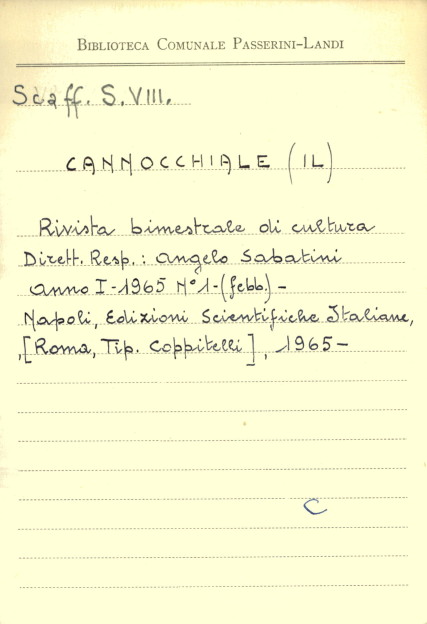 BIBLIOTECA COMUNALE PASSERINI-LANDI
Scaff. S.VIII.
CANNOCCHIALE (IL)
Rivista bimestrale di cultura
Dirett. Resp.: Angelo Sabatini
Anno I-1965 N°1-(febb.)-
Napoli, Edizioni Scientifiche Italiane,
,[Roma, Tip. Coppitelli], 1965-
C